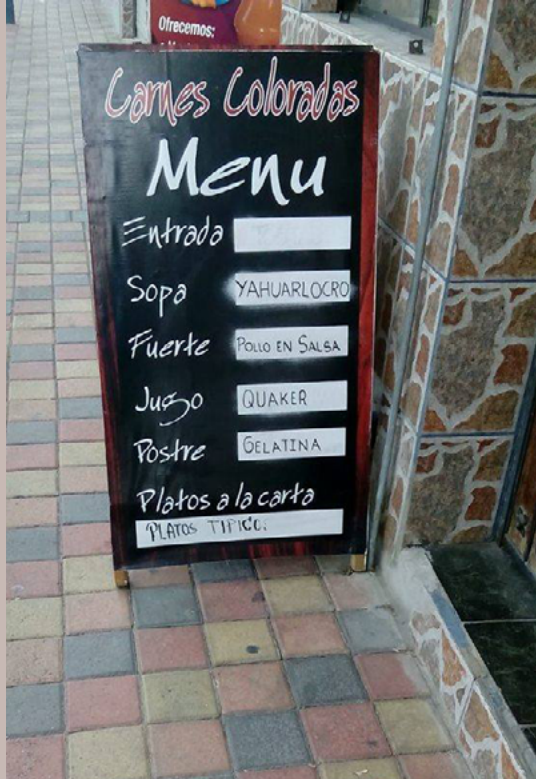 Ofrecemos:
Carnes Coloradas
Menu
Entrada
Sopa YAHUARLOCRO
Fuerte POLLO EN SALSA
Jugo QUAKER
Postre GELATINA
Platos a la carta
PLATOS TIPICO.